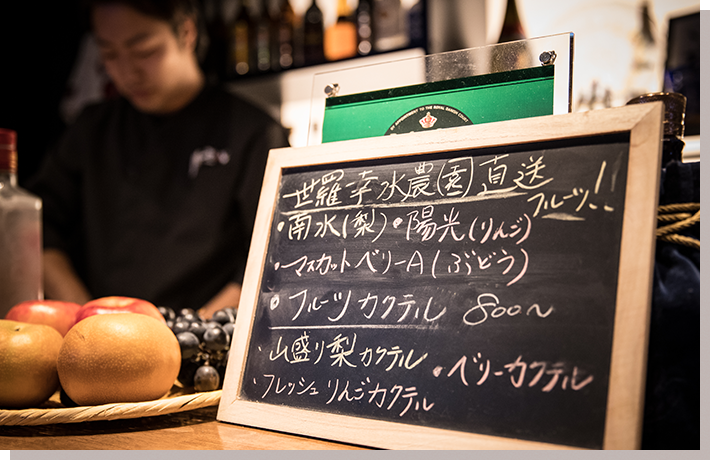 BY APPOINTMENT TO THE ROYAL DANISH COURT
世羅幸水農園直送
フルーツ!!
・南水(梨)・陽光(りんご)
・マスカットベリーA(ぶどう)
・フルーツカクテル 800~
・山盛り梨カクテル
・ベリーカクテル
・フレッシュりんごカクテル